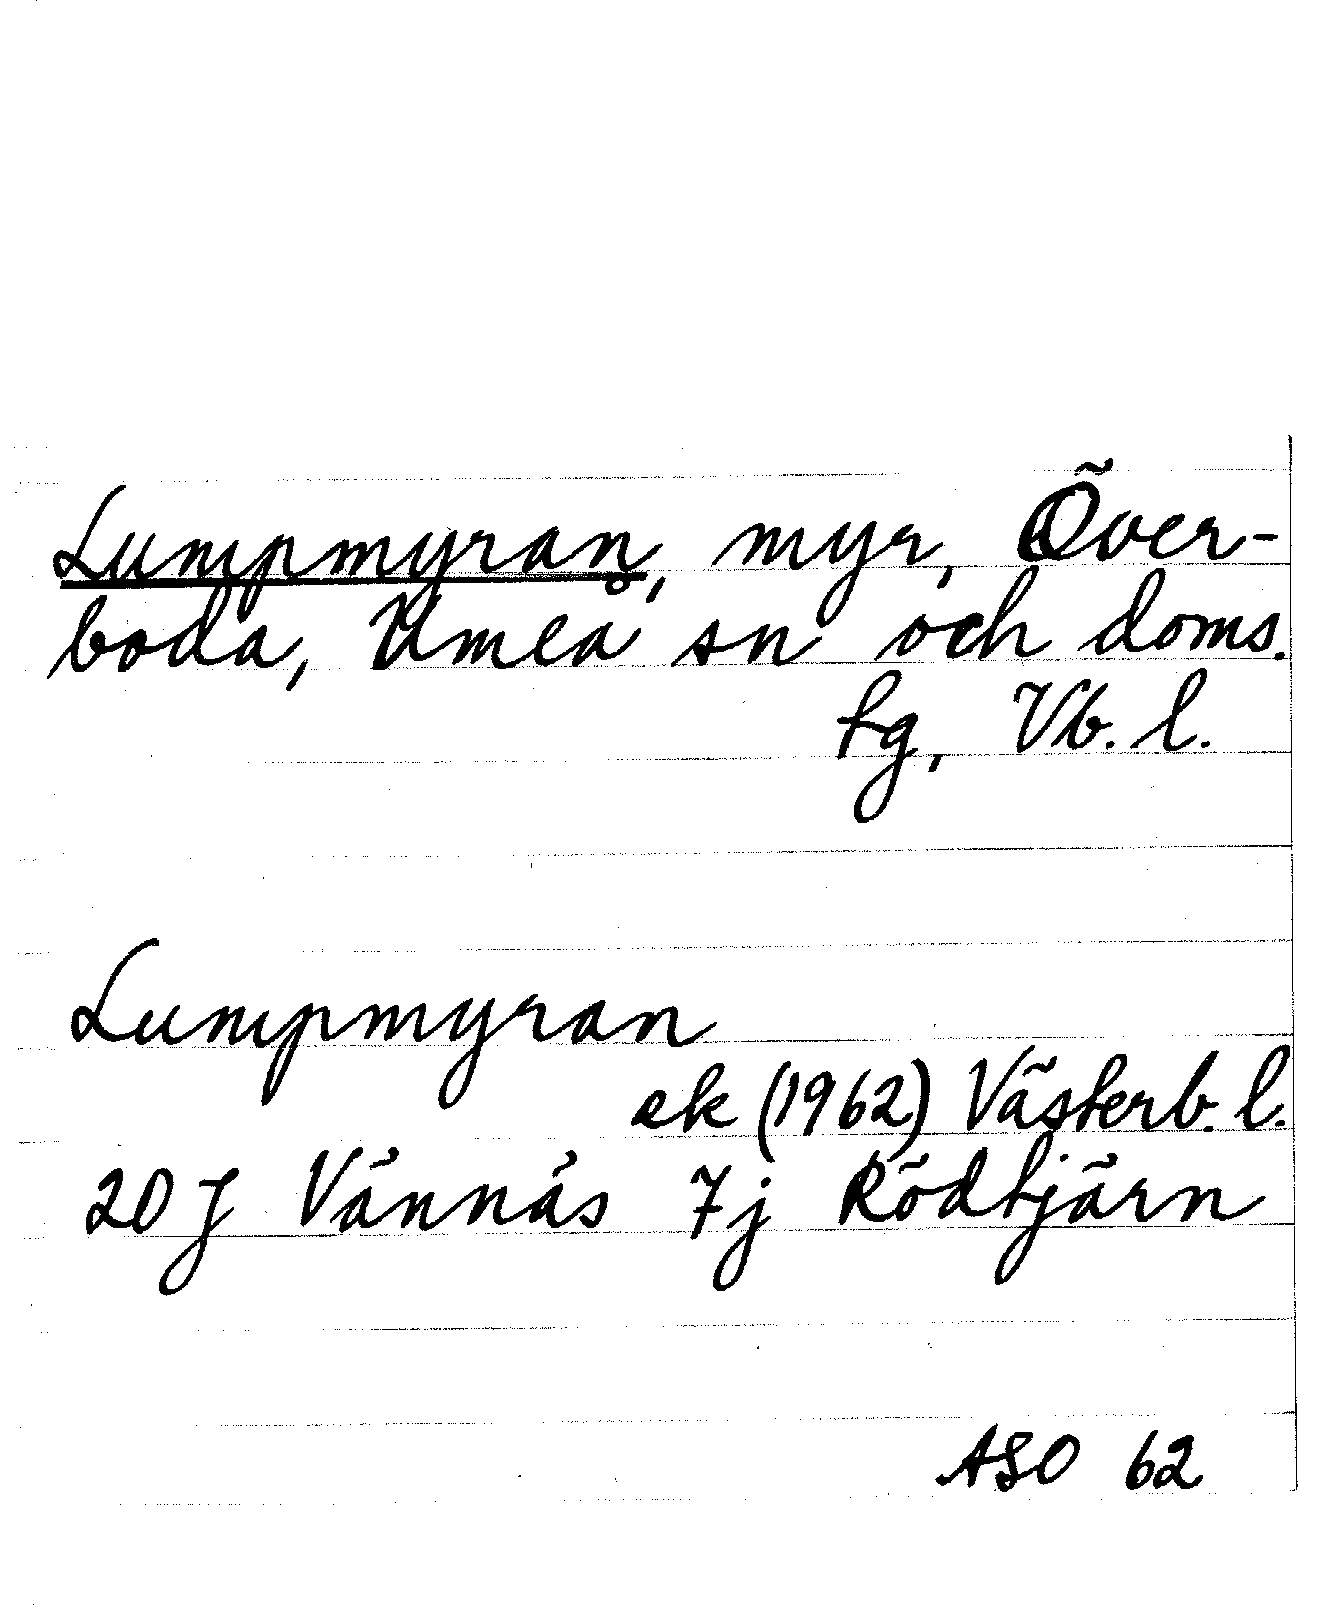 Lumpmyran, myr, Över-
boda, Umeå sn och doms.
tg, Vb. l.
Lumpmyran
ek (1962) Västerb. l.
20 J Vännäs 7j Rödtjärn
ASO 62